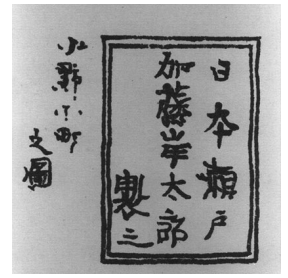 日本瀬戸
加藤岸太郎
製三
小野小町
之圖